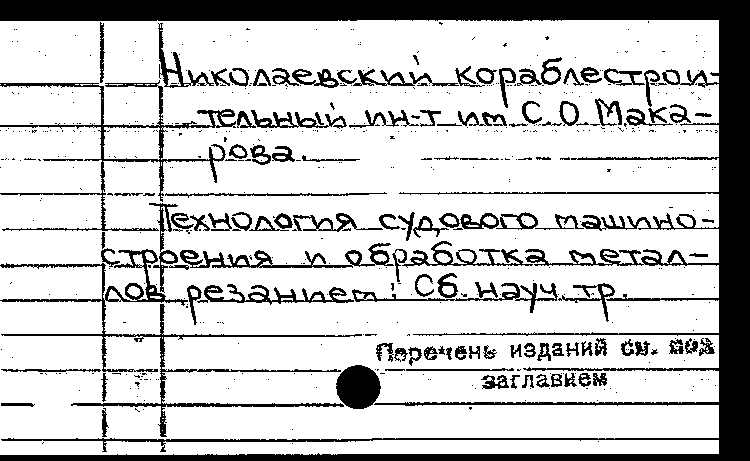 Николаевский кораблестрои-
тельный ин-т им С О Мака-
рова.
Технология судового машино-
строения и обработка метал-
лов резанием: Сб. науч. тр.
Перечень изданий см. под
заглавием